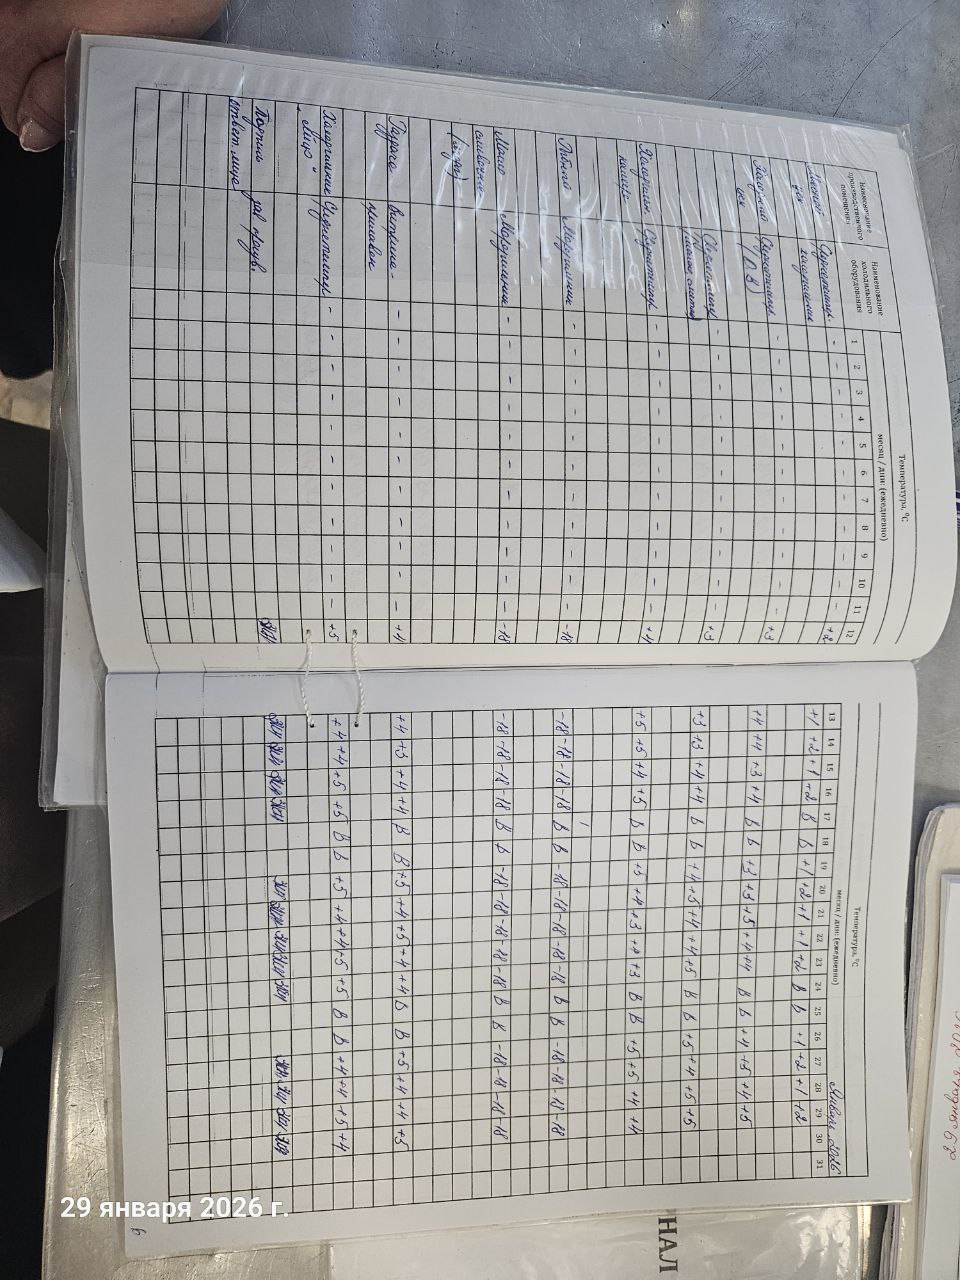 Температура, °С
месяц / дни: (ежедневно)
Наименование производственного помещения
Наименование холодильного оборудования
1 2 3 4 5 6 7 8 9 10 11 12
Мясной цех
- - - - - - - - - - - +2
Холодный цех
- - - - - - - - - - - +3
- - - - - - - - - - - +3
- - - - - - - - - - - +4
Морозильник - - - - - - - - - - - -18
Масло сливочное Морозильник - - - - - - - - - - - -18
Витрина прилавок - - - - - - - - - - - +4
Холодильник "Яйцо" - - - - - - - - - - - +5
Подпись ответ. лица
Январь 2026
Температура, °С
месяц / дни: (ежедневно)
13 14 15 16 17 18 19 20 21 22 23 24 25 26 27 28 29 30 31
+1 +2 +1 +2 В В +1 +2 +1 +1 +2 В В +1 +2 +1 +2
+4 +4 +3 +4 В В +3 +3 +5 +4 +4 В В +4 +5 +4 +5
+3 +3 +4 +4 В В +4 +5 +4 +4 +5 В В +5 +4 +5 +5
+5 +5 +4 +5 В В +5 +4 +3 +4 +3 В В +5 +5 +4 +4
-18 -18 -18 -18 В В -18 -18 -18 -18 -18 В В -18 -18 -18 -18
-18 -18 -18 -18 В В -18 -18 -18 -18 -18 В В -18 -18 -18 -18
+4 +3 +4 +4 В В +5 +4 +5 +4 +4 В В +5 +4 +4 +5
+4 +4 +5 +5 В В +5 +4 +4 +5 +5 В В +4 +4 +5 +4
6
29 января 2026
НАЛ
29 января 2026 г.